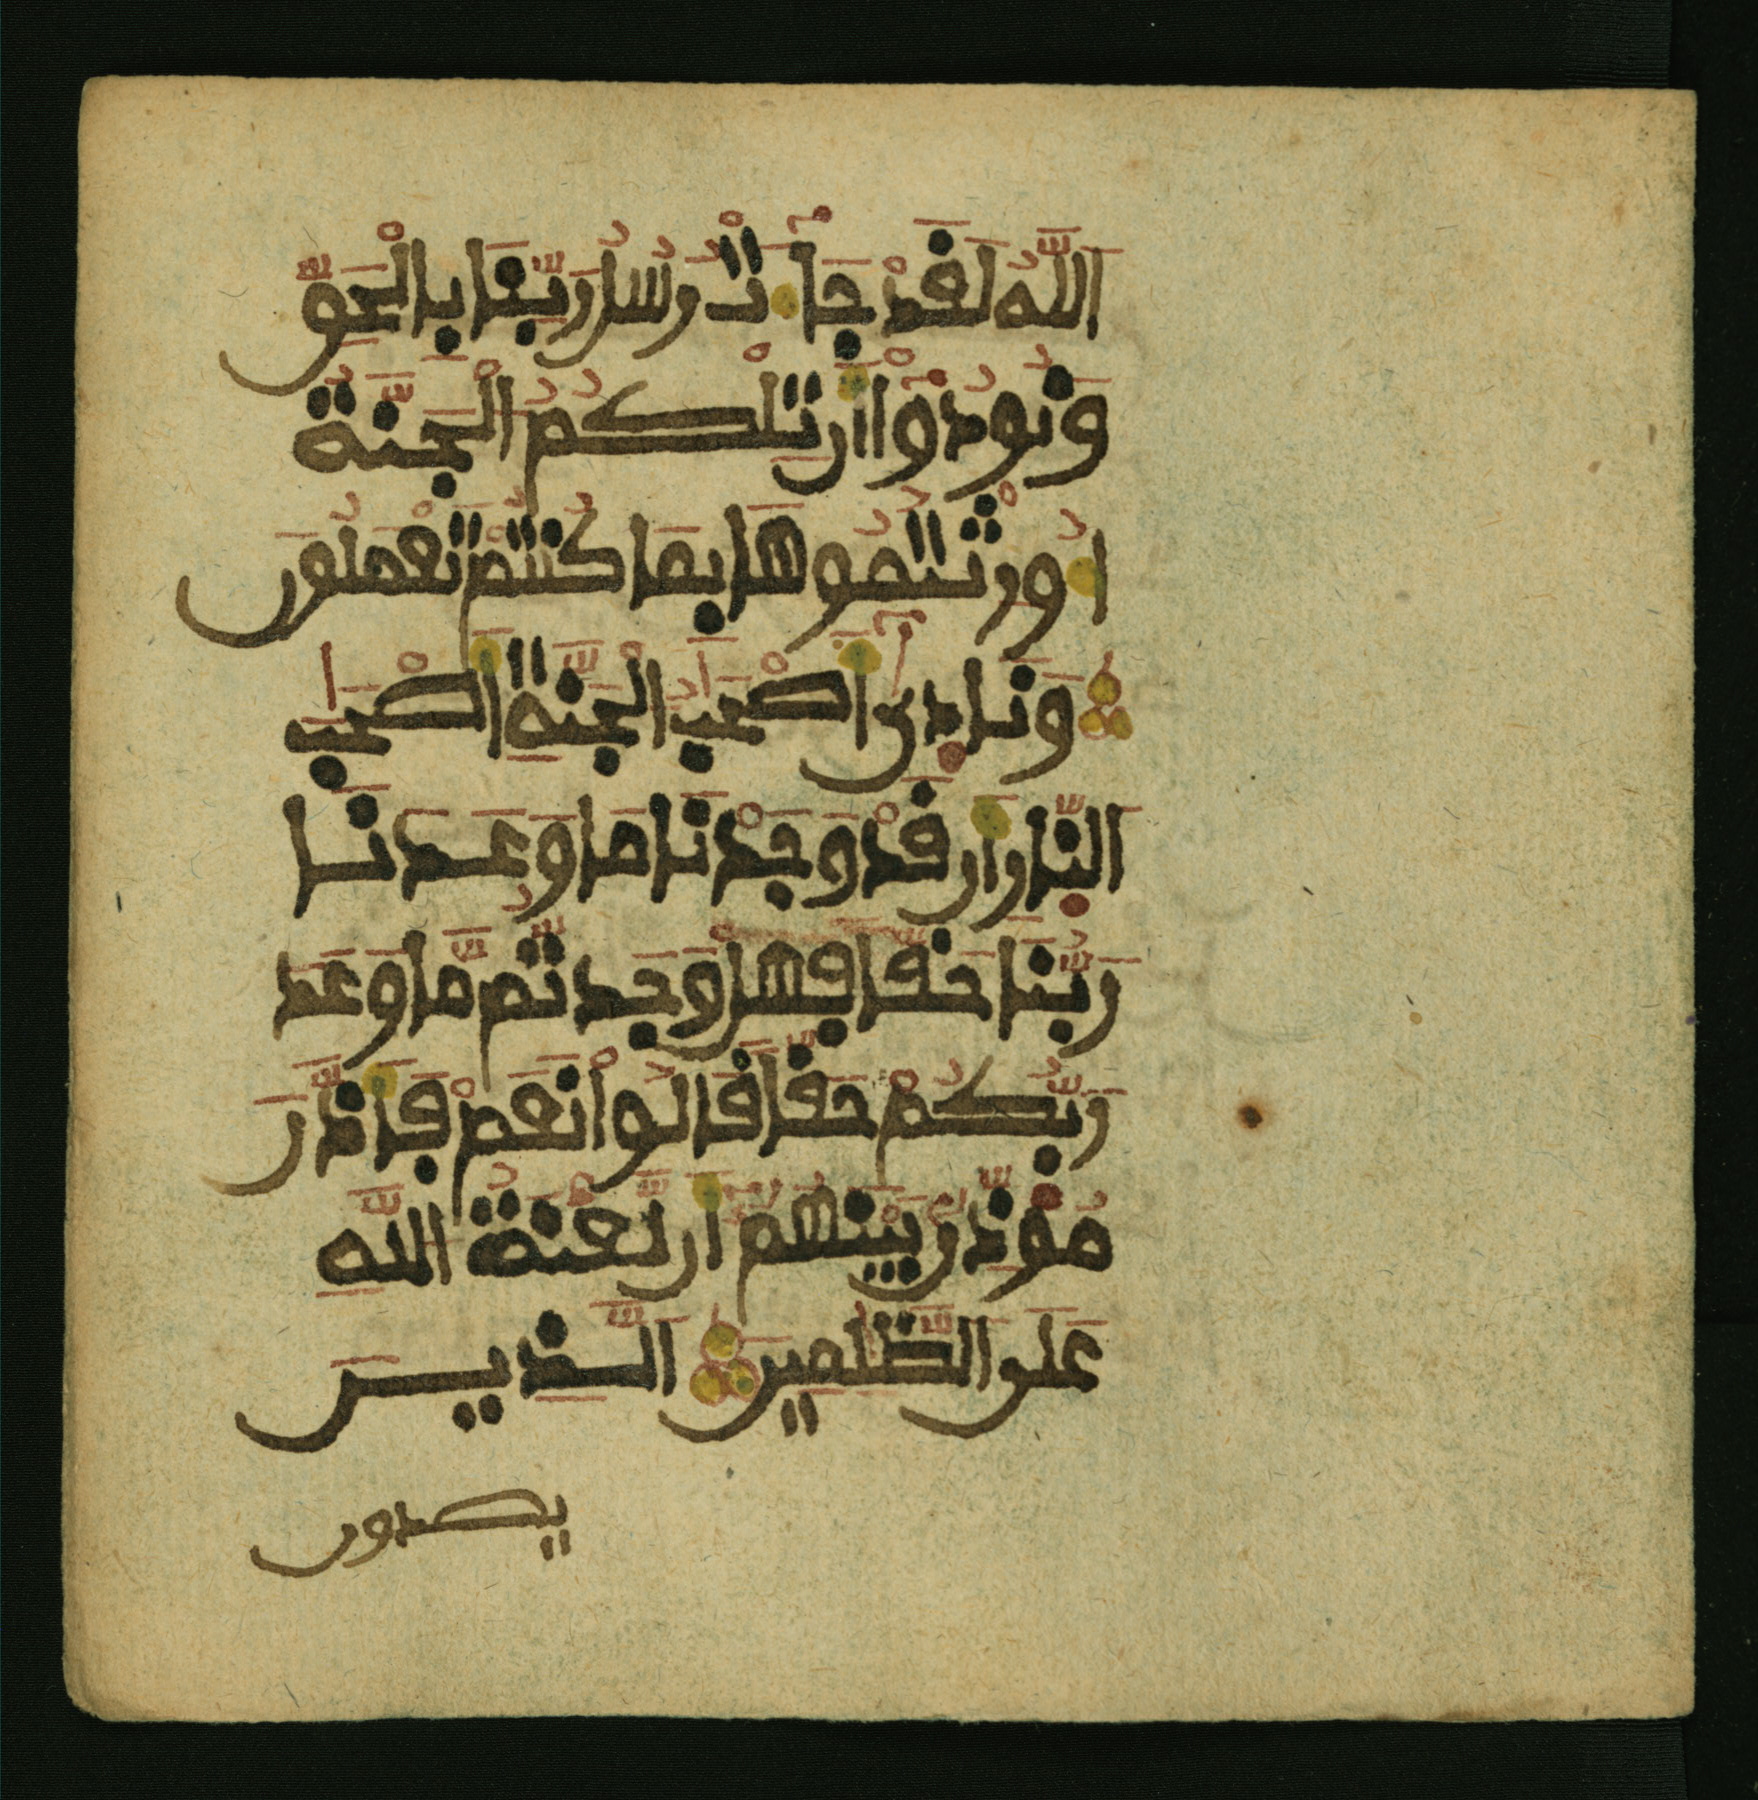 اللَّهُ لَقَدْ جَآءَتْ رُسُلُ رَبِّنَا بِالْحَقِّ
وَنُودُوٓا أَن تِلْكُمُ الْجَنَّةُ
أُورِثْتُمُوهَا بِمَا كُنتُمْ تَعْمَلُونَ
وَنَادَىٰٓ أَصْحَٰبُ الْجَنَّةِ أَصْحَٰبَ
النَّارِ أَن قَدْ وَجَدْنَا مَا وَعَدَنَا
رَبُّنَا حَقّا فَهَلْ وَجَدتُّم مَّا وَعَدَ
رَبُّكُمْ حَقّا قَالُوا نَعَمْ فَأَذَّنَ
مُؤَذِّنٌ بَيْنَهُمْ أَن لَّعْنَةُ اللَّهِ
عَلَى الظَّٰلِمِينَ الَّذِينَ
يصدون